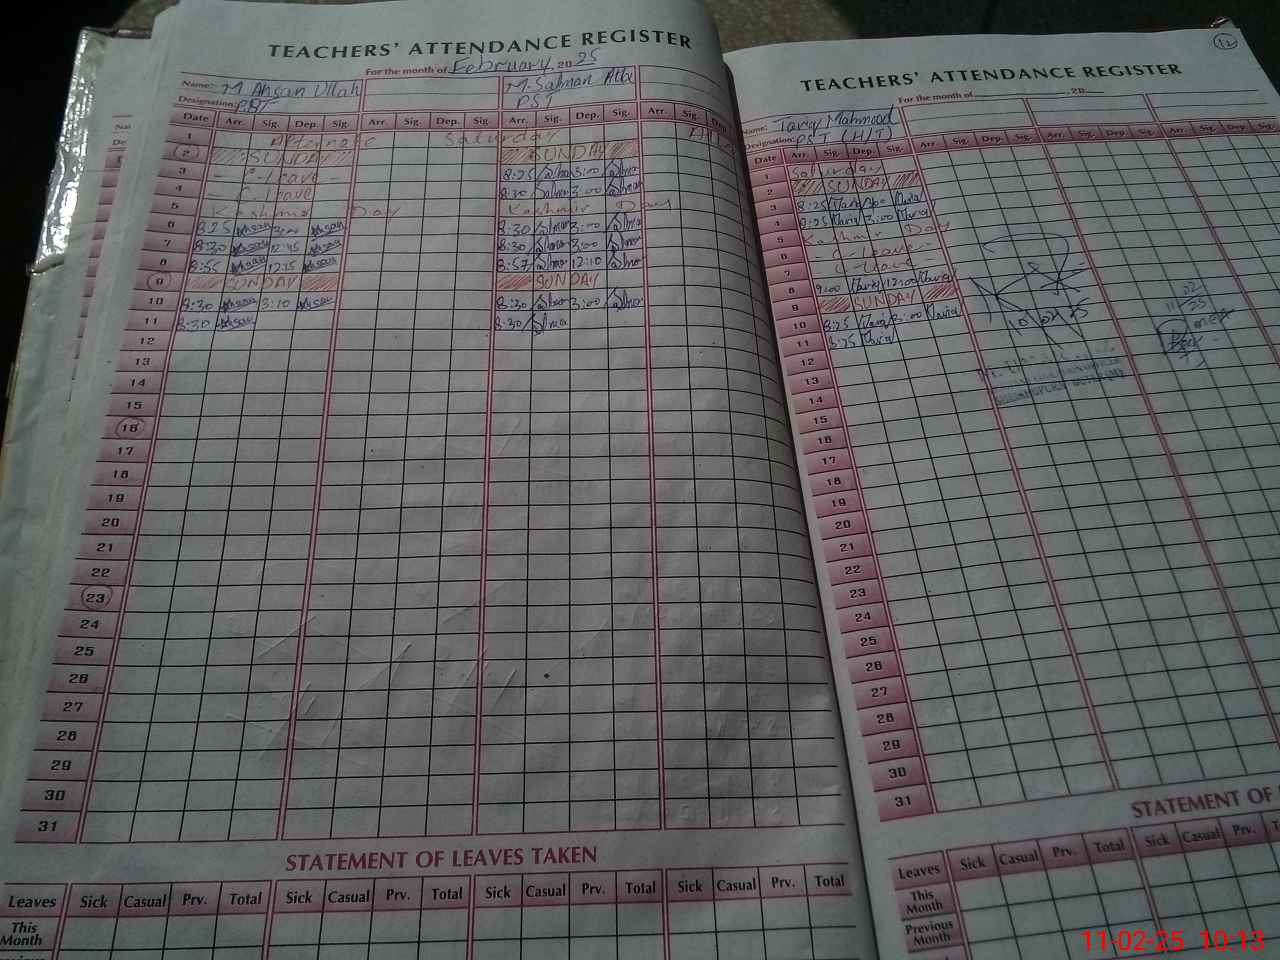 TEACHERS' ATTENDANCE REGISTER
For the month of February 2025
Name: M Ahsan Ullah M. Salman Atta
Designation: PST PST
Date Arr. Sig. Dep. Sig. Arr. Sig. Dep. Sig. Arr. Sig. Dep. Sig. Arr. Sig. Dep.
1 Alternate Saturday
2 SUNDAY SUNDAY
3 - C-leave - 8:25 3:00
4 - C-leave - 8:30 3:00
5 Kashmir Day Kashmir Day
6 8:25 3:00 8:30 3:00
7 8:30 12:45 8:30 3:00
8 8:55 12:15 8:57 12:10
9 SUNDAY SUNDAY
10 8:30 3:10 8:30 3:00
11 8:30 8:30
12
13
14
15
16
17
18
19
20
21
22
23
24
25
26
27
28
29
30
31
STATEMENT OF LEAVES TAKEN
Leaves Sick Casual Prv. Total Sick Casual Prv. Total Sick Casual Prv. Total Sick Casual Prv. Total
This Month
12
TEACHERS' ATTENDANCE REGISTER
For the month of 20
Name: Tariq Mahmood
Designation: PST (H/T)
Date Arr. Sig. Dep. Sig. Arr. Sig. Dep. Sig. Arr. Sig. Dep. Sig.
1 Saturday
2 SUNDAY
3 8:25 3:00
4 8:25 3:00
5 Kashmir Day
6 - C-leave -
7 - C-leave -
8 9:00 12:00
9 SUNDAY
10 8:25 3:00
11 8:25
12
13
14
15
16
17
18
19
20
21
22
23
24
25
26
27
28
29
30
31
STATEMENT OF
Leaves Sick Casual Prv. Total Sick Casual Prv.
This Month
Previous Month
11-02-25 10:13